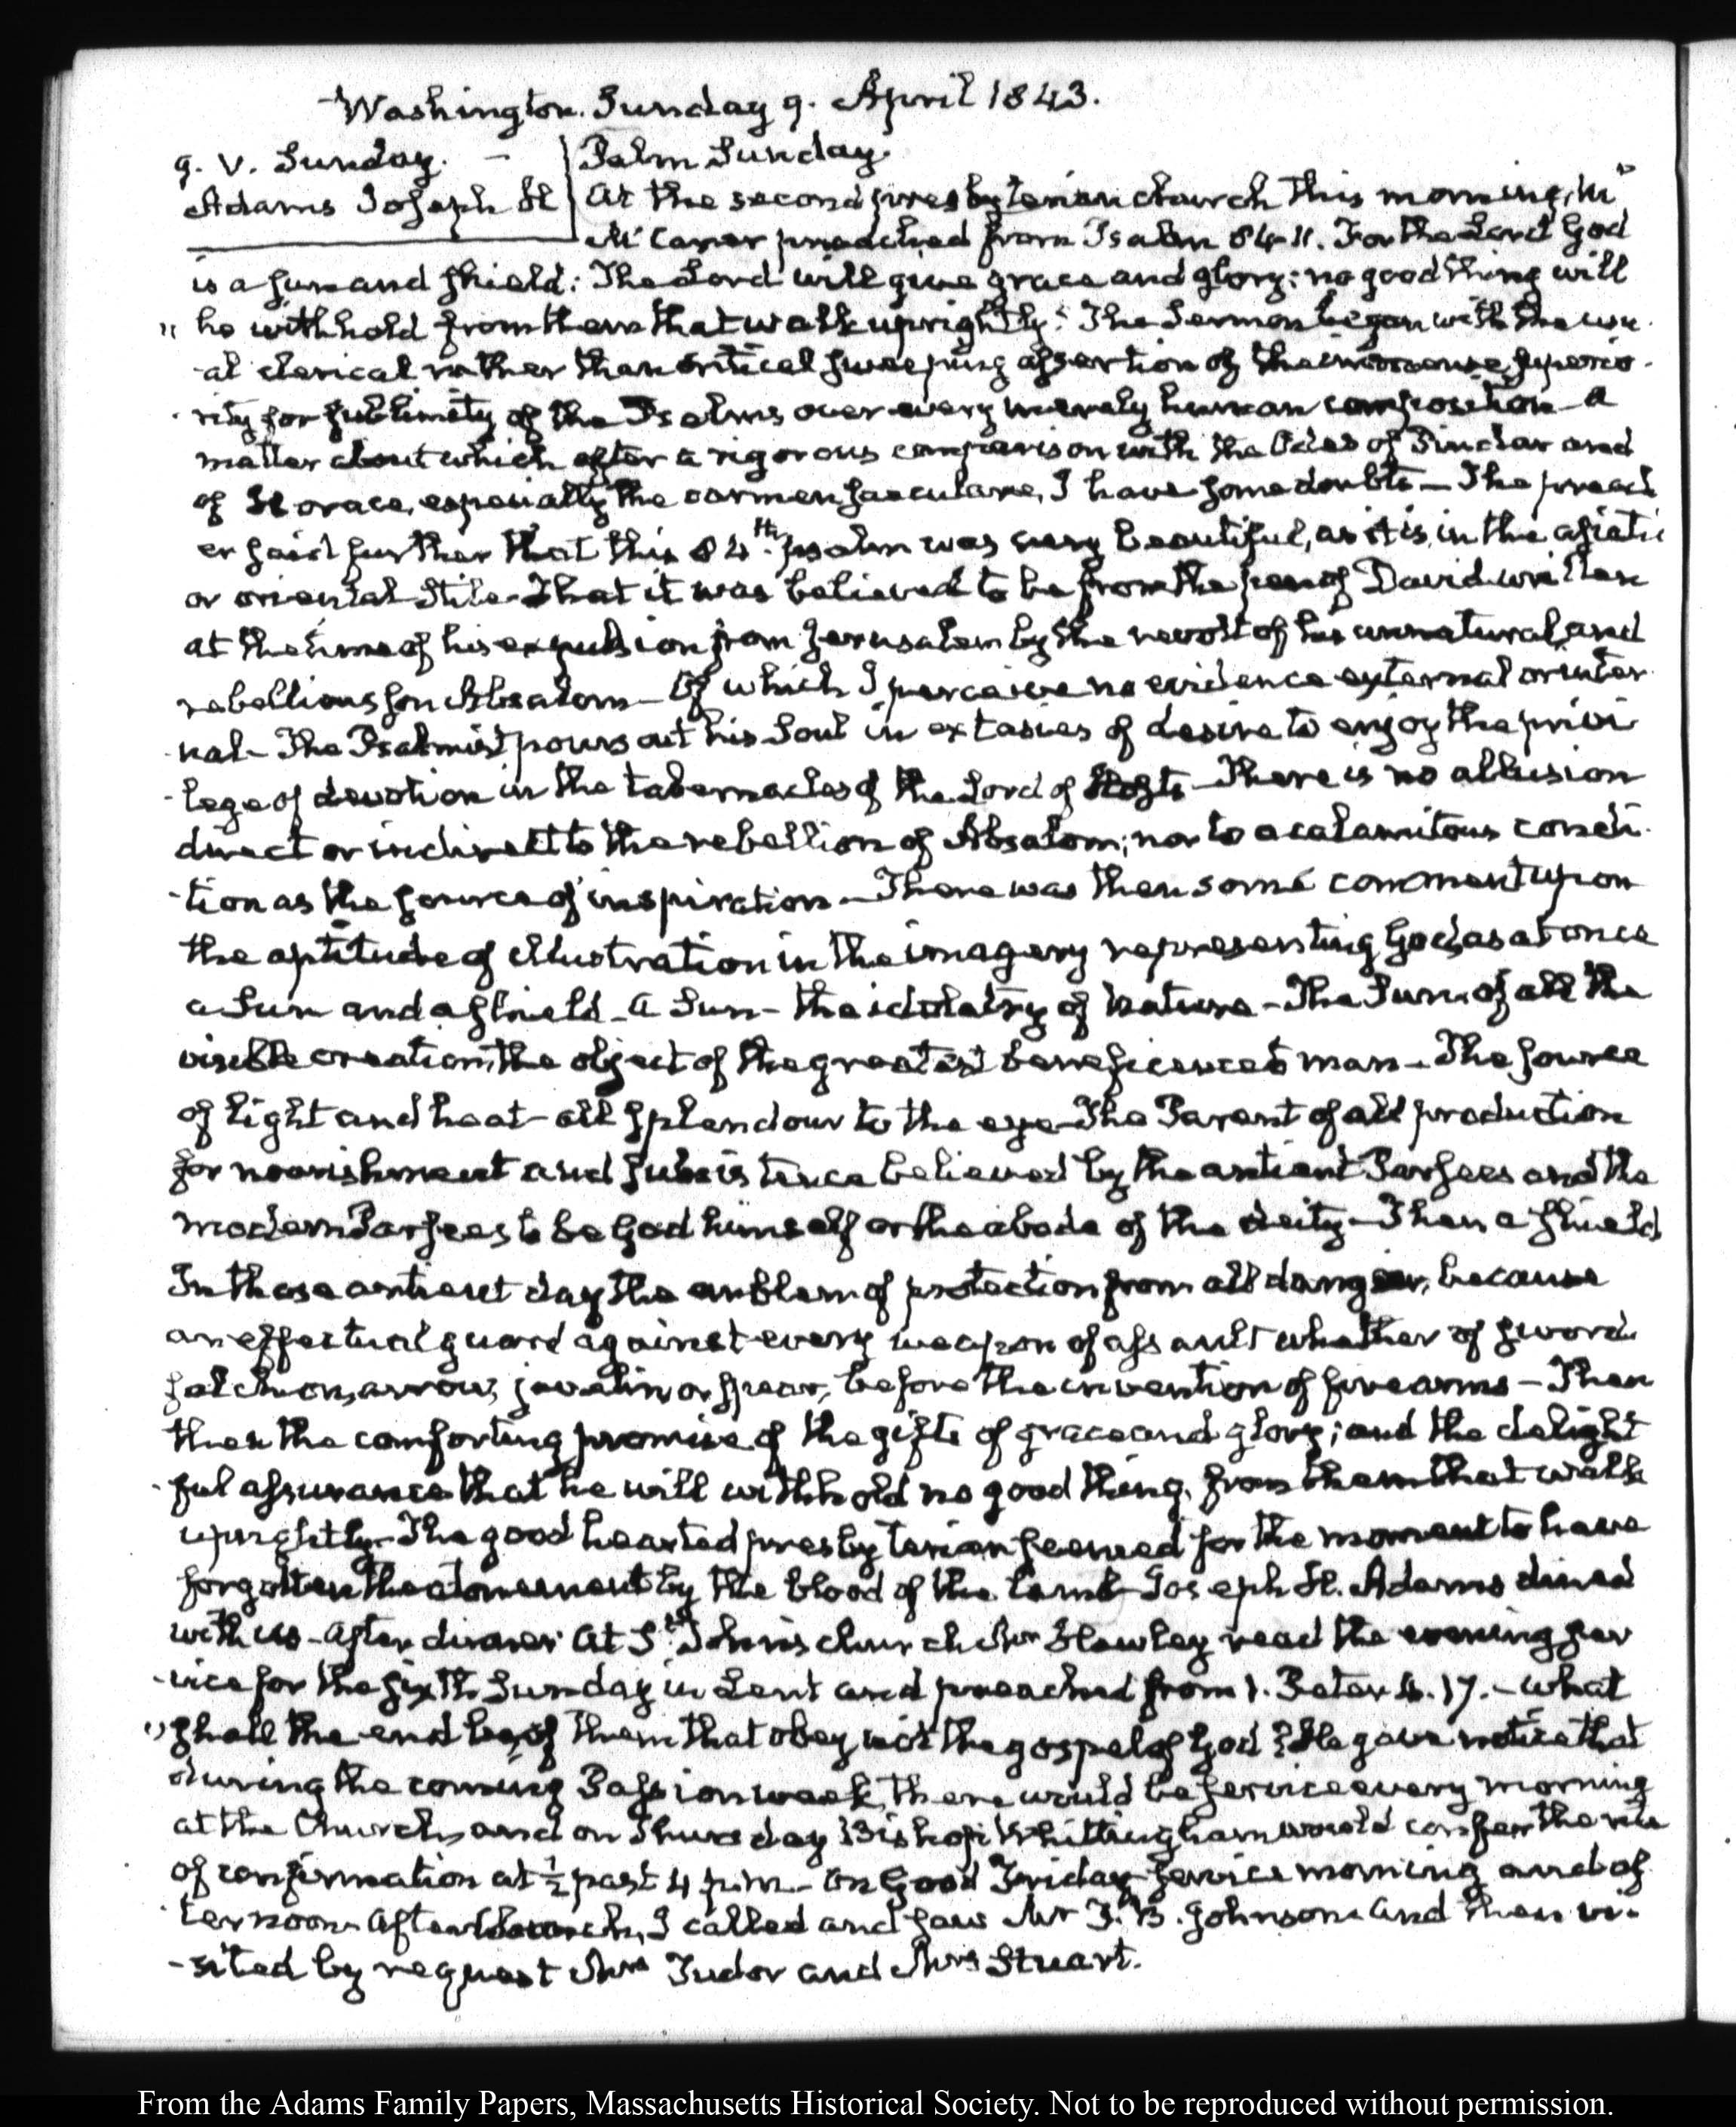 Washington. Sunday 9. April 1843.
9. V. Sunday. - Palm Sunday.
Adams Joseph H At the second presbyterian church this morning, Mr
McCarer preached from Psalm 84-11. For the Lord God
is a sun and shield: The Lord will give grace and glory: no good thing will
" he withhold from them that walk uprightly." The Sermon began with the usu-
-al clerical rather than critical sweeping assertion of the immense superio-
-rity for sublimity of the Psalms over every merely human composition - a
matter about which after a rigorous comparison with the Odes of Pindar and
of Horace, especially the carmen saeculare, I have some doubts - The preach
er said further that this 84th psalm was very beautiful, as it is, in the asiatic
or oriental Stile - That it was believed to be from the pen of David written
at the time of his expulsion from Jerusalem by the revolt of his unnatural and
rebellious son Absalom - Of which I perceive no evidence external or inter-
nal - The Psalmist pours out his Soul in extasies of desire to enjoy the privi
-lege of devotion in the tabernacles of the Lord of Hosts - There is no allusion
direct or indirect to the rebellion of Absalom; nor to a calamitous condi-
-tion as the source of inspiration - There was then some comment upon
the aptitude of illustration in the imagery representing God, as at once
a Sun and a shield - A Sun - the idolatry of Nature - The Sun of all the
visible creation, the object of the greatest beneficence to man - The source
of light and heat - all splendour to the eye - The Parent of all production
for nourishment and subsistence believed by the antient Parsees and the
modern Parsees to be God himself or the abode of the deity - Then a shield
In those antient day the emblem of protection from all danger, because
an effectual guard against every weapon of assault whether of sword
falchion, arrow, javelin or spear, before the invention of firearms - Then
then the comforting promise of the gifts of grace and glory; and the delight
-ful assurance that he will withhold no good thing, from them that walk
uprightly - The good hearted presbyterian seemed for the moment to have
forgotten the atonement by the blood of the lamb - Joseph H. Adams dined
with us - After dinner At St. John's church Mr Hawley read the evening ser
-vice for the sixth Sunday in Lent and preached from 1. Peter 4. 17. - What
" shall the end be, of them that obey not the gospel of God? He gave notice that
during the coming Passion week, there would be service every morning
at the Church, and on Thursday Bishop Whittingham would confer the rite
of confirmation at ½ past 4 p.m. - On Good Friday service morning and af
ternoon. After church, I called and saw Mr J. B. Johnson and then vi-
-sited by request Mrs Tudor and Mrs Stuart.
From the Adams Family Papers, Massachusetts Historical Society. Not to be reproduced without permission.